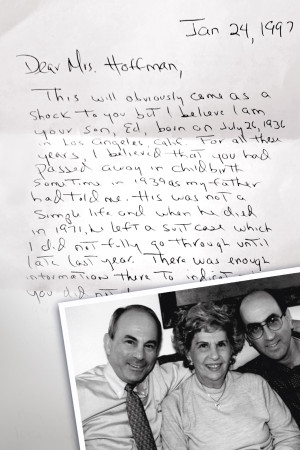 Jan 24, 1997
Dear Mrs. Hoffman,
This will obviously come as a
shock to you but I believe I am
your son, Ed, born on July 26, 1936
in Los Angeles, Calif. For all these
years, I believed that you had
passed away in childbirth
sometime in 1939 as my father
had told me. His was not a
simple life and when he died
in 1971, he left a suit case which
I did not fully go through until
late last year. There was enough
information there to indicat
you did not